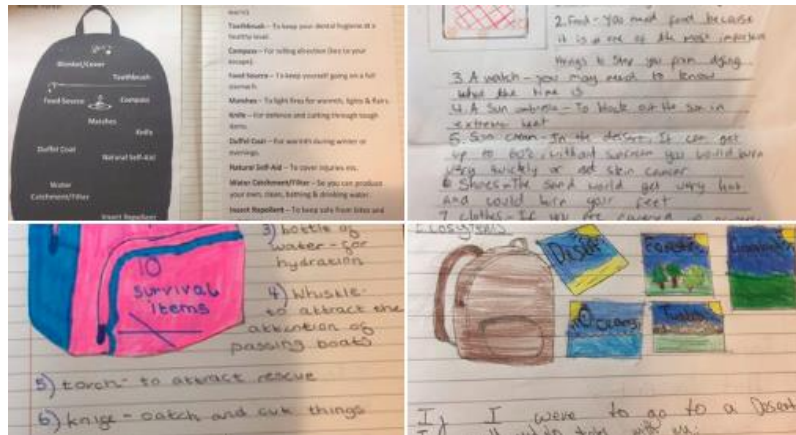 Blanket/Cover
Toothbrush
Food Source
Compass
Matches
Knife
Duffel Coat
Natural Self-Aid
Water
Catchment/Filter
Insect Repellent
Toothbrush – To keep your dental hygiene at a
healthy level.
Compass – For telling direction (key to your
escape).
Food Source – To keep yourself going on a full
stomach.
Matches – To light fires for warmth, lights & flairs.
Knife – For defence and cutting through tough
items.
Duffel Coat – For warmth during winter or
evenings.
Natural Self-Aid – To cover injuries etc.
Water Catchment/Filter – So you can produce
your own, clean, bathing & drinking water.
Insect Repellent – To keep safe from bites and
2. Food - you need food because
it is one of the most important
things to stop you from dying.
3. A watch - you may need to know
what the time is
4. A Sun umbrella - To block out the sun in
extreme heat
5. Sun cream - In the dessert, It can get
up to 60°c, without suncream you would burn
very quickly or get skin cancer
6. Shoes - The sand would get very hot
and could burn your feet
7. clothes - If you are covered up
10
survival
items
3) bottle of
water - for
hydration
4) Whistle -
to attract the
attention of
passing boats
5) torch - to attract rescue
6) knige - catch and cut things
Ecosystems
Desert
Forests
Grassland
Oceans
Tundra
If I were to go to a Desert